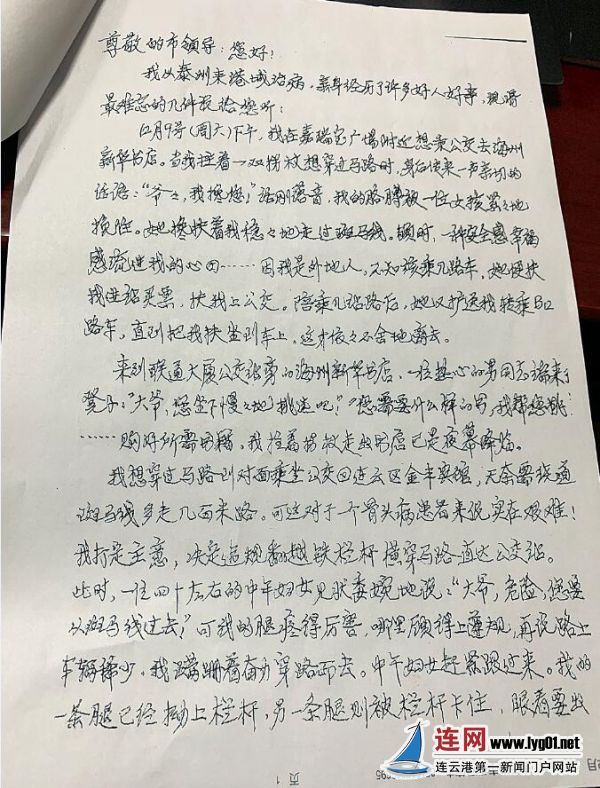 尊敬的市领导：您好！
我从泰州来港城治病，亲身经历了许多好人好事，现将
最难忘的几件说给您听：
12月9号(周六)下午，我在嘉瑞宝广场附近想乘公交去海州
新华书店。当我拄着一双拐杖想穿过马路时，身后传来一声亲切的
话语："爷々，我搀您！"话刚落音，我的胳膊被一位女孩紧々地
搀住。她搀扶着我稳々地走过斑马线。顿时，一种安全感幸福
感流进我的心田……因我是外地人，不知该乘几路车，她便扶
我进站买票，扶我上公交。陪乘几站路后，她又护送我转乘B12
路车，直到把我扶坐到车上，这才依々不舍地离去。
来到联通大厦公交站旁的海州新华书店，一位热心的男同志端来了
凳子："大爷，您坐下慢々地挑选吧！""您需要什么样的书，我帮您挑！
……购好所需书籍，我拄着拐杖走出书店已是夜幕降临。
我想穿过马路到对面乘坐公交回连云区金丰宾馆，无奈需绕道
斑马线多走几百米路。可这对于一个骨头病患者来说实在艰难！
我打定主意，决定违规翻越铁栏杆横穿马路直达公交站。
此时，一位四十左右的中年妇女见状委婉地说："大爷，危险，您要
从斑马线过去！"可我的腿疼得厉害，哪里顾得上遵规，再说路上
车辆稀少。我蹒跚着奋力穿路而去。中年妇女赶紧跟过来。我的
一条腿已经拗上栏杆，另一条腿则被栏杆卡住，眼看要出
页 1
连网 www.lyg01.net
连云港第一新闻门户网站